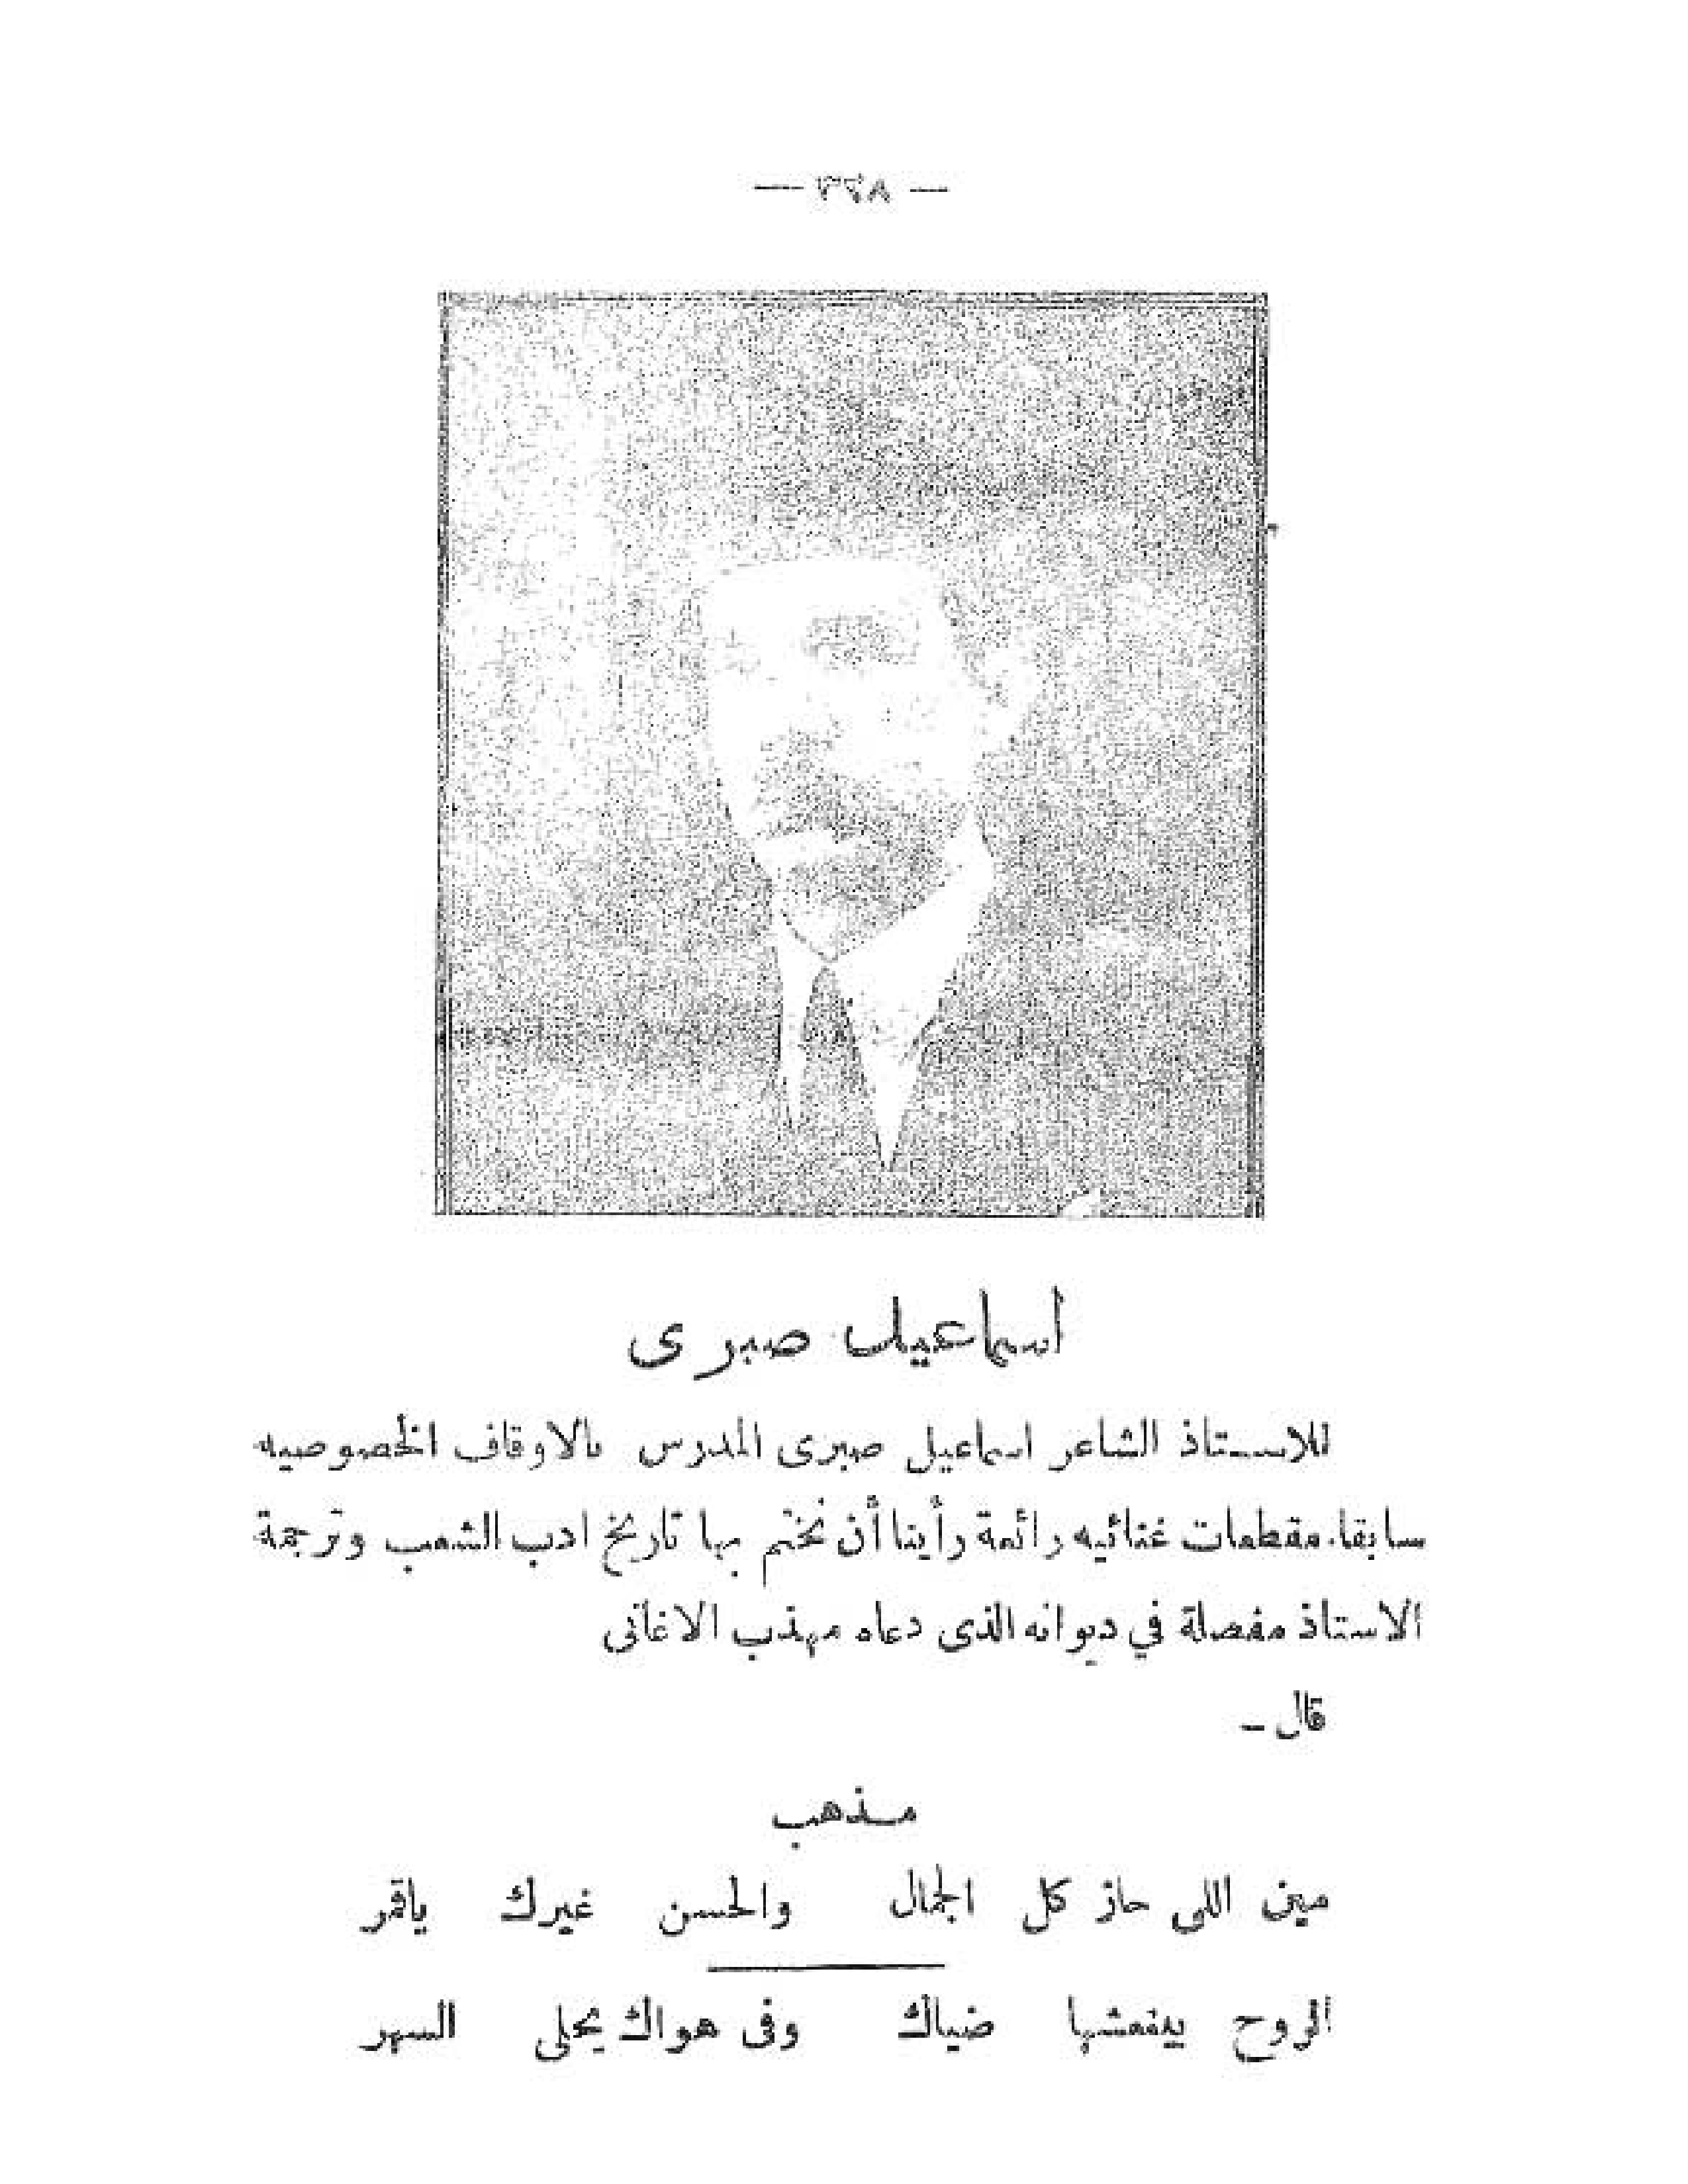 — ٣٢٨ —
اسماعيل صبرى
للاستاذ الشاعر اسماعيل صبرى المدرس بالاوقاف الخصوصيه
سابقا. مقطعات غنائيه رائعة رأينا أن نختم بها تاريخ ادب الشعب وترجمة
الاستاذ مفصلة في ديوانه الذى دعاه مهذب الاغانى
قال –
مذهب
مين اللى حاز كل الجمال والحسن غيرك ياقمر
الروح ينعشها ضياك وفى هواك يحلى السهر